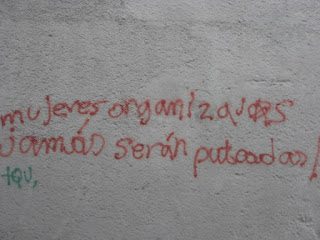 mujeres organizadas
jamás serán puteadas!
tqv,